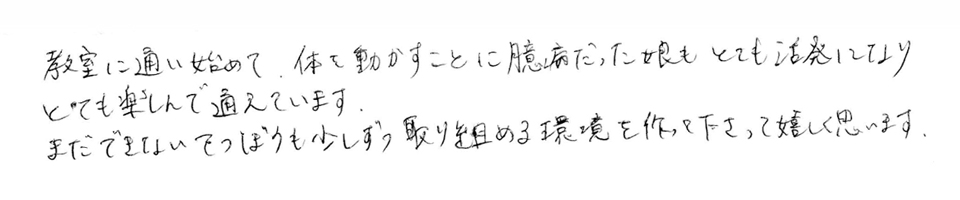 教室に通い始めて、体を動かすことに臆病だった娘もとても活発になり
とても楽しんで通えています。
まだできないてつぼうも少しずつ取り組める環境を作って下さって嬉しく思います。